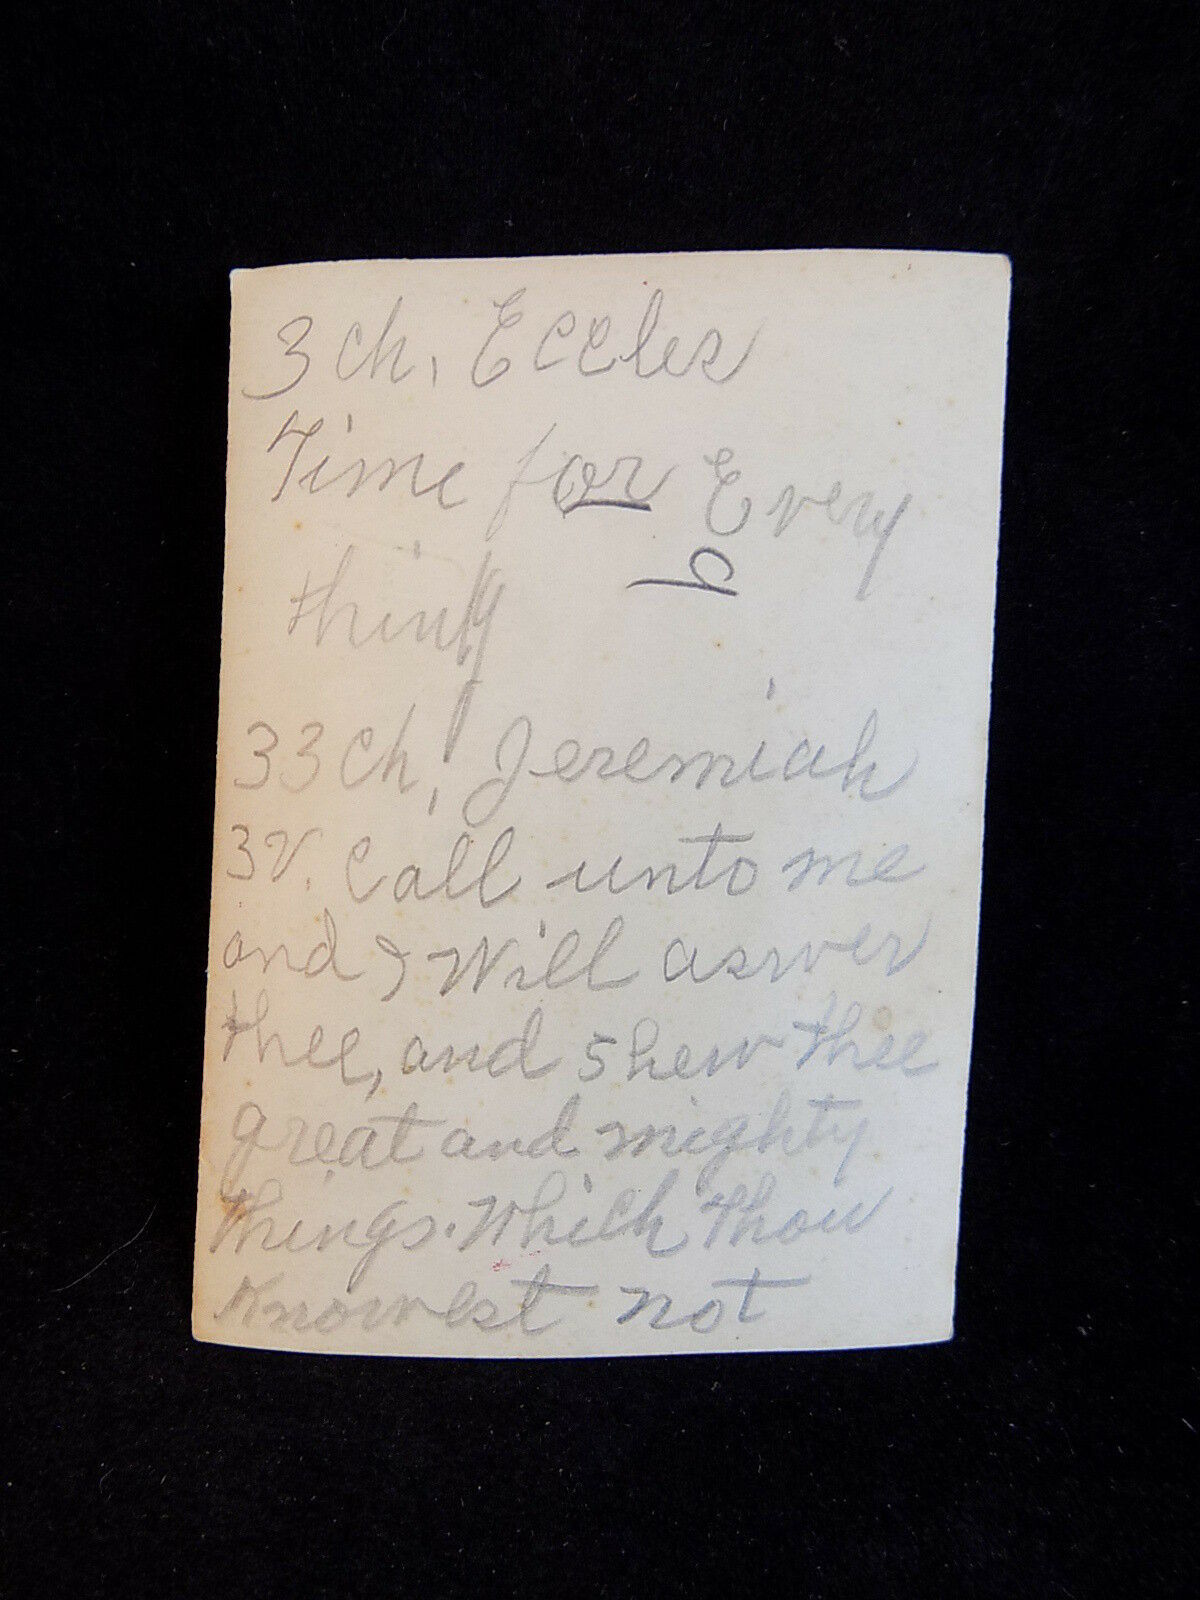 3 ch, Eccles
Time for Every
thing
33 ch, Jeremiah
3V. Call unto me
and I will aswer
thee, and shew thee
great and mighty
things. Which thou
Knowest not